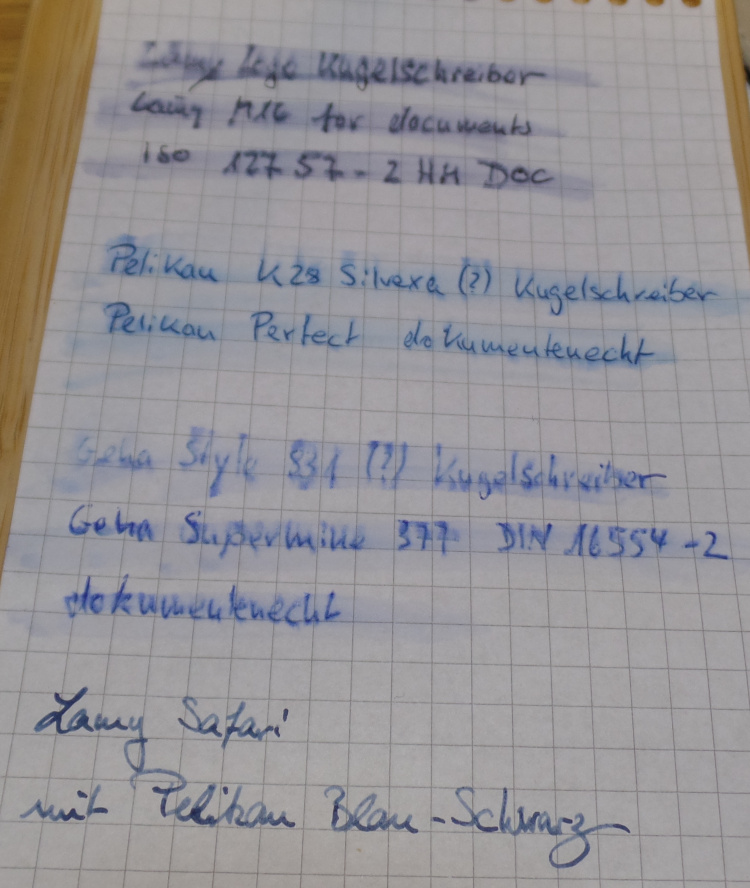 Lamy Logo Kugelschreiber
Lamy M16 for documents
iso 12757-2 HH DOC
Pelikan K28 Silvexa (?) Kugelschreiber
Pelikan Perfect dokumentenecht
Geha Style 931 (?) Kugelschreiber
Geha Supermine 377 DIN 16554-2
dokumentenecht
Lamy Safari
mit Pelikan Blau-Schwarz